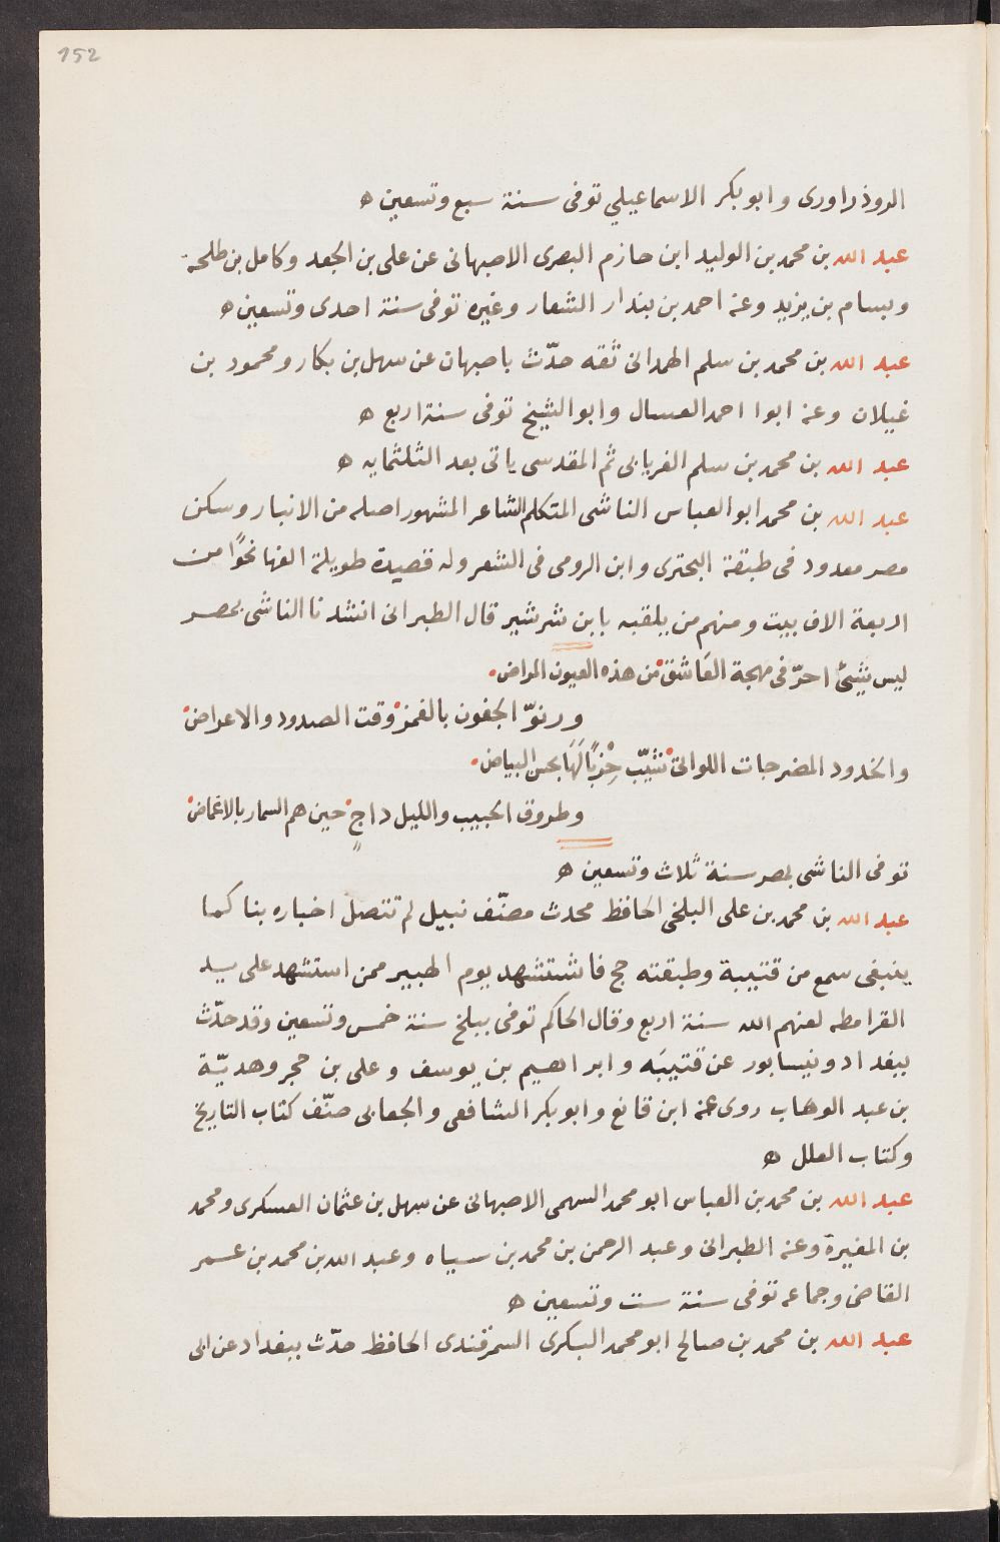 152
الروذراورى وابو بكر الاسماعيلي توفى سنة سبع وتسعين ه
عبد الله بن محمد بن الوليد ابن حازم البصرى الاصبهانى عن على بن الجعد وكامل بن طلحة
وبسام بن يزيد وعنه احمد بن بندار الشعار وغيره توفى سنة احدى وتسعين ه
عبد الله بن محمد بن سلم الهمدانى ثقه حدّث باصبهان عن سهل بن بكار ومحمود بن
غيلان وعنه ابوا احمد العسال وابو الشيخ توفى سنة اربع ه
عبد الله بن محمد بن سلم الفريابى ثم المقدسى ياتى بعد الثلثمايه ه
عبد الله بن محمد ابو العباس الناشى المتكلم الشاعر المشهور اصله من الانبار وسكن
مصر معدود فى طبقة البحترى وابن الرومى فى الشعر وله قصيدة طويلة الفها نحوًا من
اربعة الاف بيت ومنهم من يلقبه بابن شرشير قال الطبرانى انشدنا الناشى بمصر
ليس شيئ احرّ فى مهجة العَاشق من هذه العيون المراض
ورنوّ الجفون بالغمز وقت الصدود والاعراض
والخدود المضرجات اللواتى شيّب لَهَا بحسن البياض
وطروق الحبيب والليل داجٍ حين هم السمار بالاغماض
توفى الناشى بمصر سنة ثلاث وتسعين ه
عبد الله بن محمد بن على البلخى الحافظ محدث مصنّف نبيل لم تتصل اخباره بنا كما
ينبغى سمع من قتيبة وطبقته حج فاشتشهد يوم الهبير ممن استشهد على يد
القرامطه لعنهم الله سنة اربع وقال الحاكم توفى ببلخ سنة خمس وتسعين وقد حدّث
ببغداد ونيسابور عن قتيبَه وابراهيم بن يوسف وعلى بن حجر وهديّة
بن عبد الوهاب روى عنه ابن قانع وابو بكر الشافعى والجعابى صنّف كتاب التاريخ
وكتاب العلل ه
عبد الله بن محمد بن العباس ابو محمد السهمى الاصبهانى عن سهل بن عثمان العسكرى ومحمد
بن المغيرة وعنه الطبرانى وعبد الرحمن بن محمد بن سياه وعبد الله بن محمد بن عمر
القاضى وجماعه توفى سنة ست وتسعين ه
عبد الله بن محمد بن صالح ابو محمد البكرى السمرقندى الحافظ حدّث ببغداد عن ابى